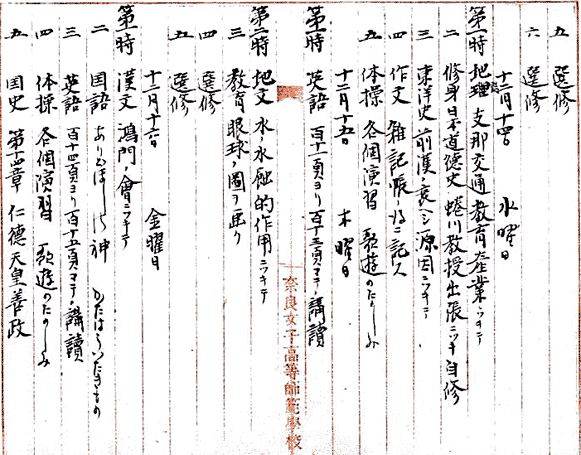 五 選修
六 選修
十二月十四日 水曜日
第一時 地理 支那交通教育産業ニツキテ
二 修身 日本道徳史 蜷川教授出張ニツキ自修
三 東洋史 前漢ノ衰ヘシ源因ニツキテ
四 作文 雑記帳ノ為ニ記入
五 体操 各個演習 歌遊のたのしみ
十二月十五日 木曜日
第一時 英語 百十一頁ヨリ百十三頁マテノ講讀
奈良女子高等師範學校
第二時 地文 水ノ水蝕的作用ニツキテ
三 教育 眼球ノ圖ヲ画ク
四 選修
五 選修
十二月十六日 金曜日
第一時 漢文 鴻門ノ會ニツキテ
二 国語 ありのほしの神 かたはらいたきもの
三 英語 百十四頁ヨリ百十五頁マテノ講讀
四 体操 各個演習 歌遊のたのしみ
五 国史 第十四章 仁徳天皇ノ善政